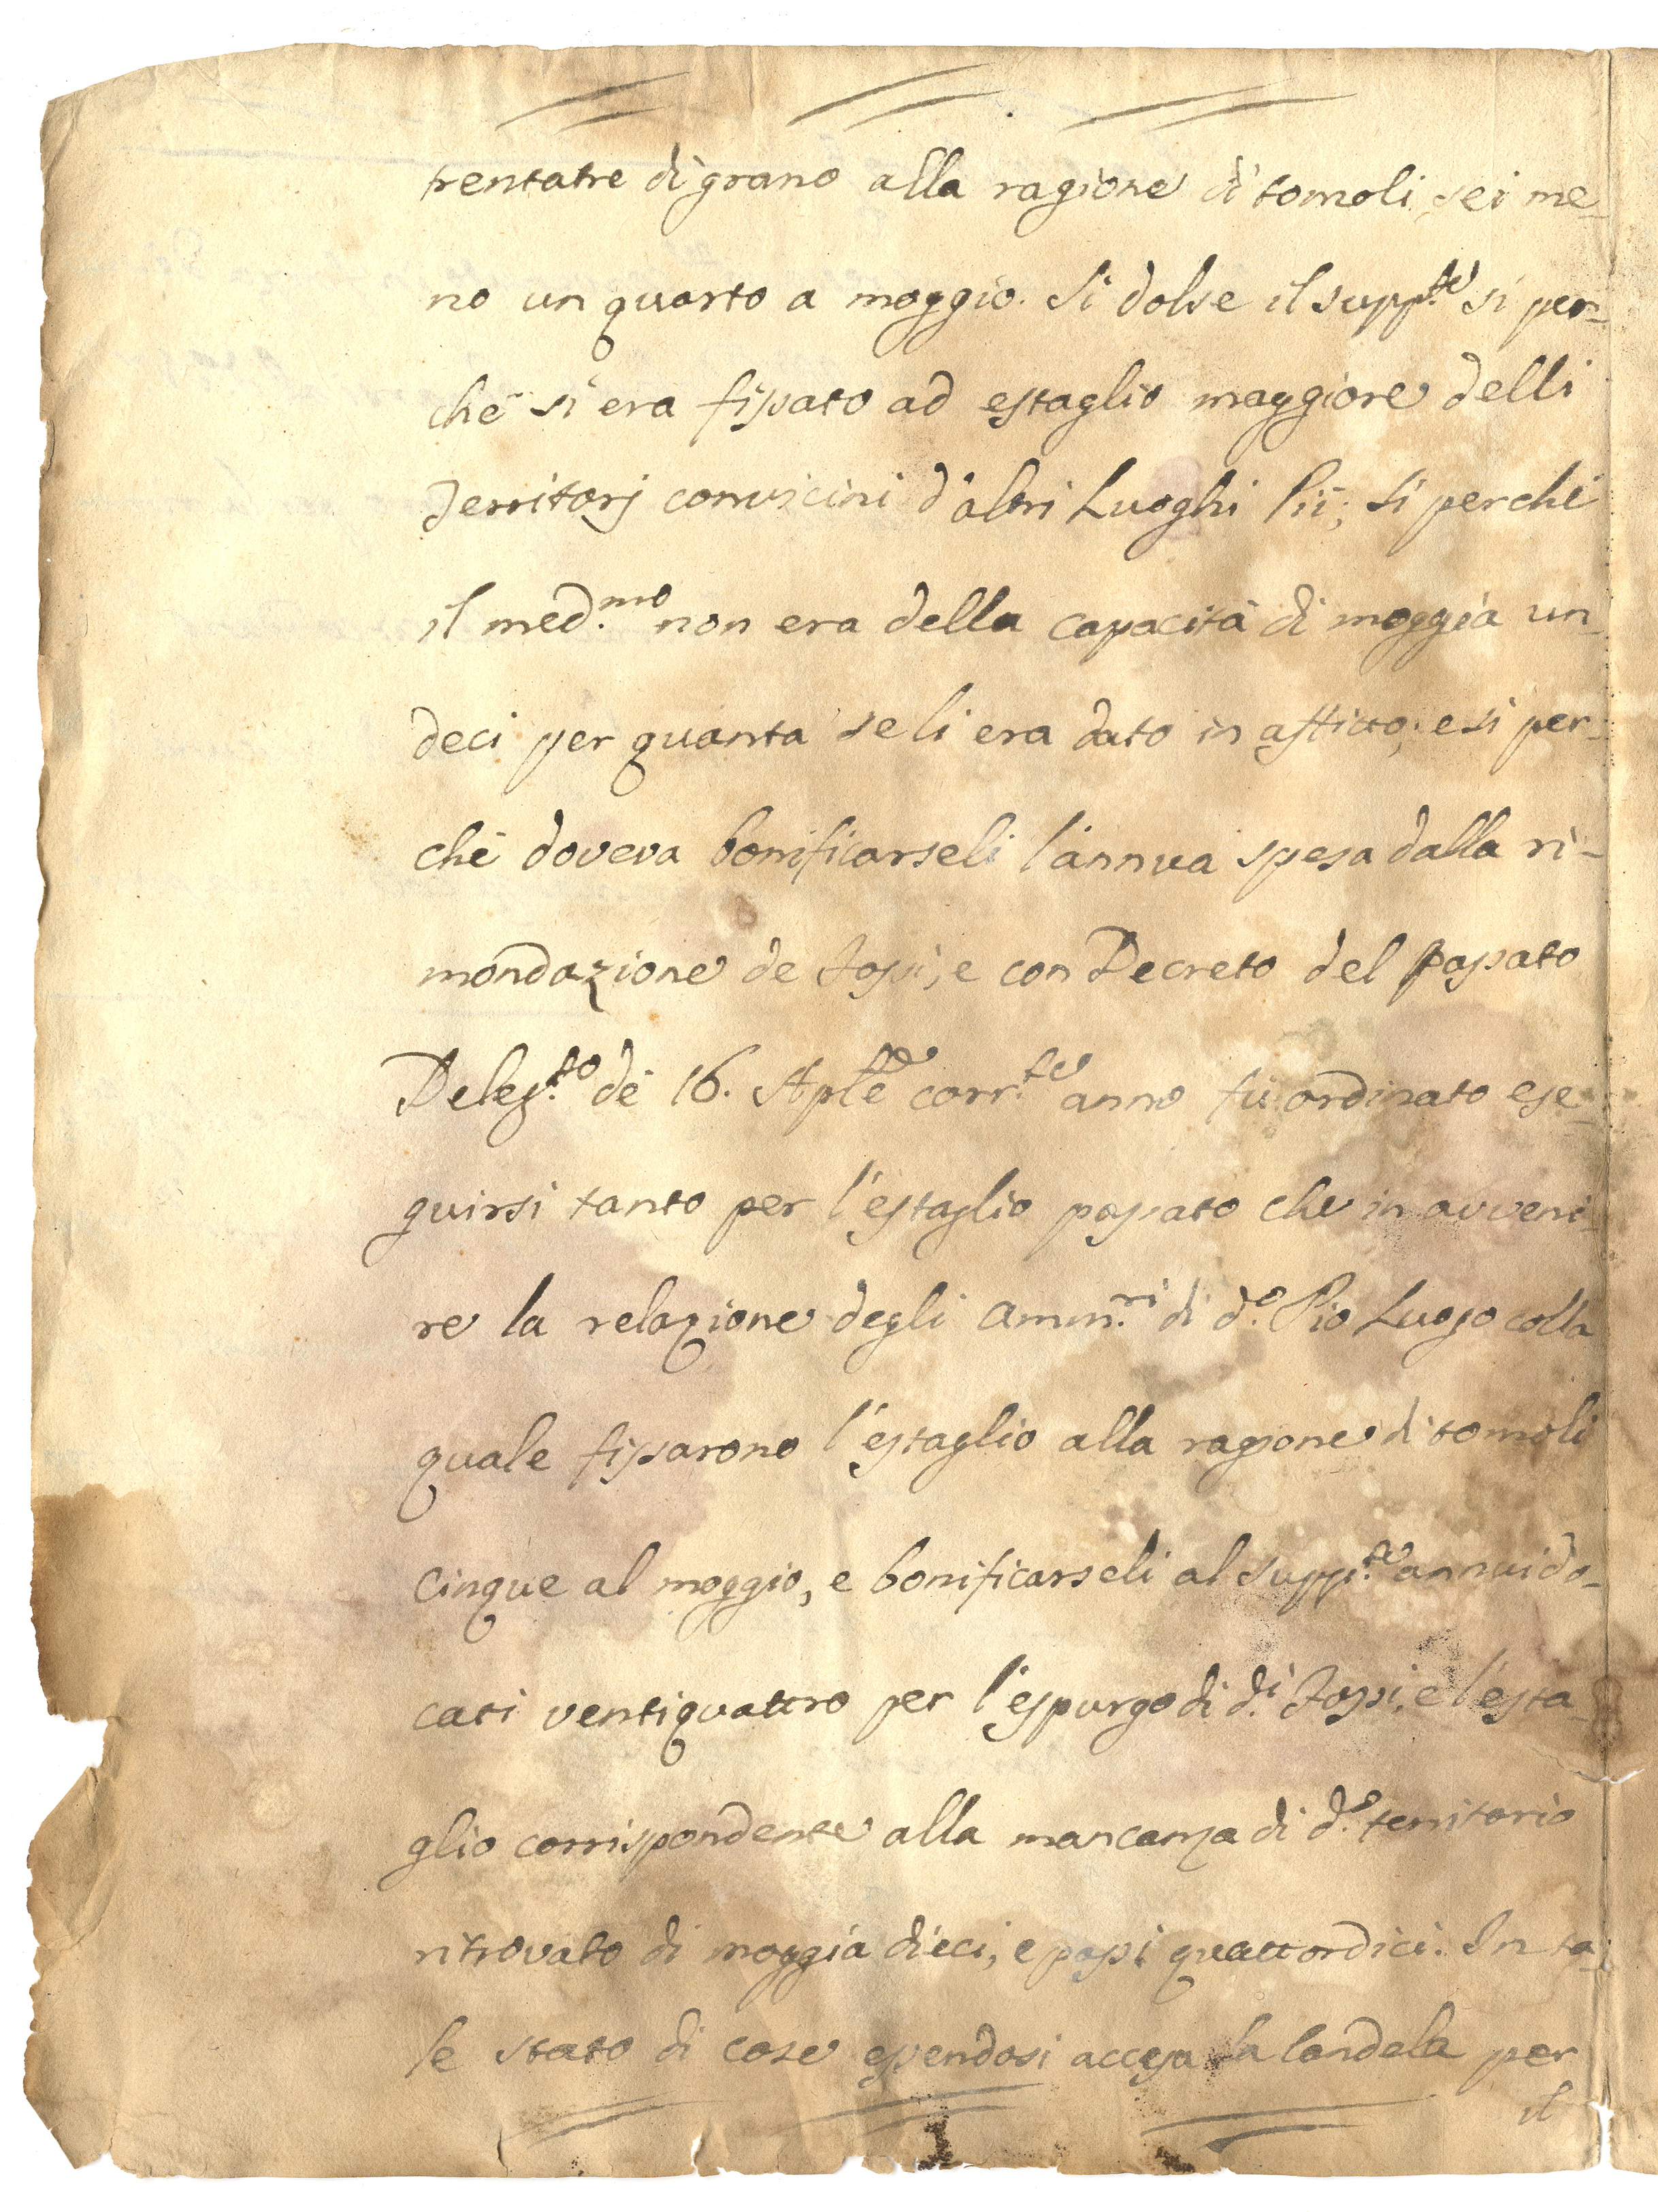 trentatre di grano alla ragione di tomoli sei me-
no un quarto a moggio. Si dolse il supp.te si per-
chè si era fissato ad estaglio maggiore delli
Territorj convicini d'altri Luoghi Pii; si perchè
il med.mo non era della capacità di moggia un-
deci per quanta se li era dato in affitto; e si per-
chè doveva bonificarseli l'annua spesa dalla ri-
mondazione de Fossi; e con Decreto del passato
Deleg.to de 16. Aple corr.te anno fù ordinato ese-
guirsi tanto per l'estaglio passato che in avveni-
re la relazione degli Amm.ri di d.o Pio Luogo colla
quale fissarono l'estaglio alla ragione di tomoli
cinque al moggio, e bonificarseli al supp.te annui do-
cati ventiquattro per l'espurgo di d.i Fossi, e l'esta-
glio corrispondente alla mancanza di d.o territorio
ritrovato di moggia dieci, e passi quattordici. In ta-
le stato di cose essendosi accesa la Candela per
il